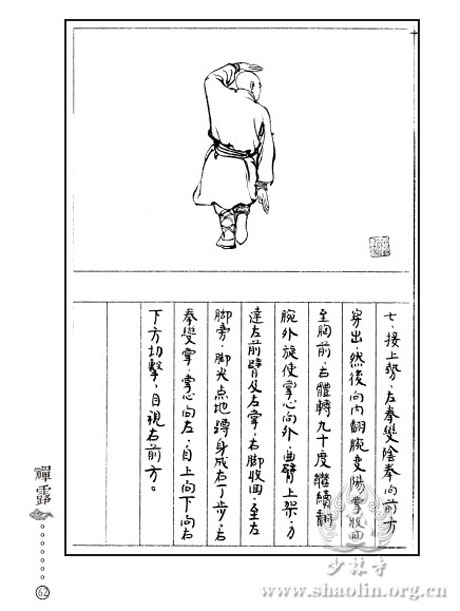 七、接上勢，左拳變陰拳向前方
穿出，然後向内翻腕变陽掌收回
至胸前，右體轉九十度繼續翻
腕外旋使掌心向外，曲臂上架，力
達左前臂及左掌，右脚收回，至左
脚旁，脚尖点地蹲身成右丁步，右
拳變掌，掌心向左，自上向下向右
下方切擊，目視右前方。
禪露
62
少林寺
www.shaolin.org.cn